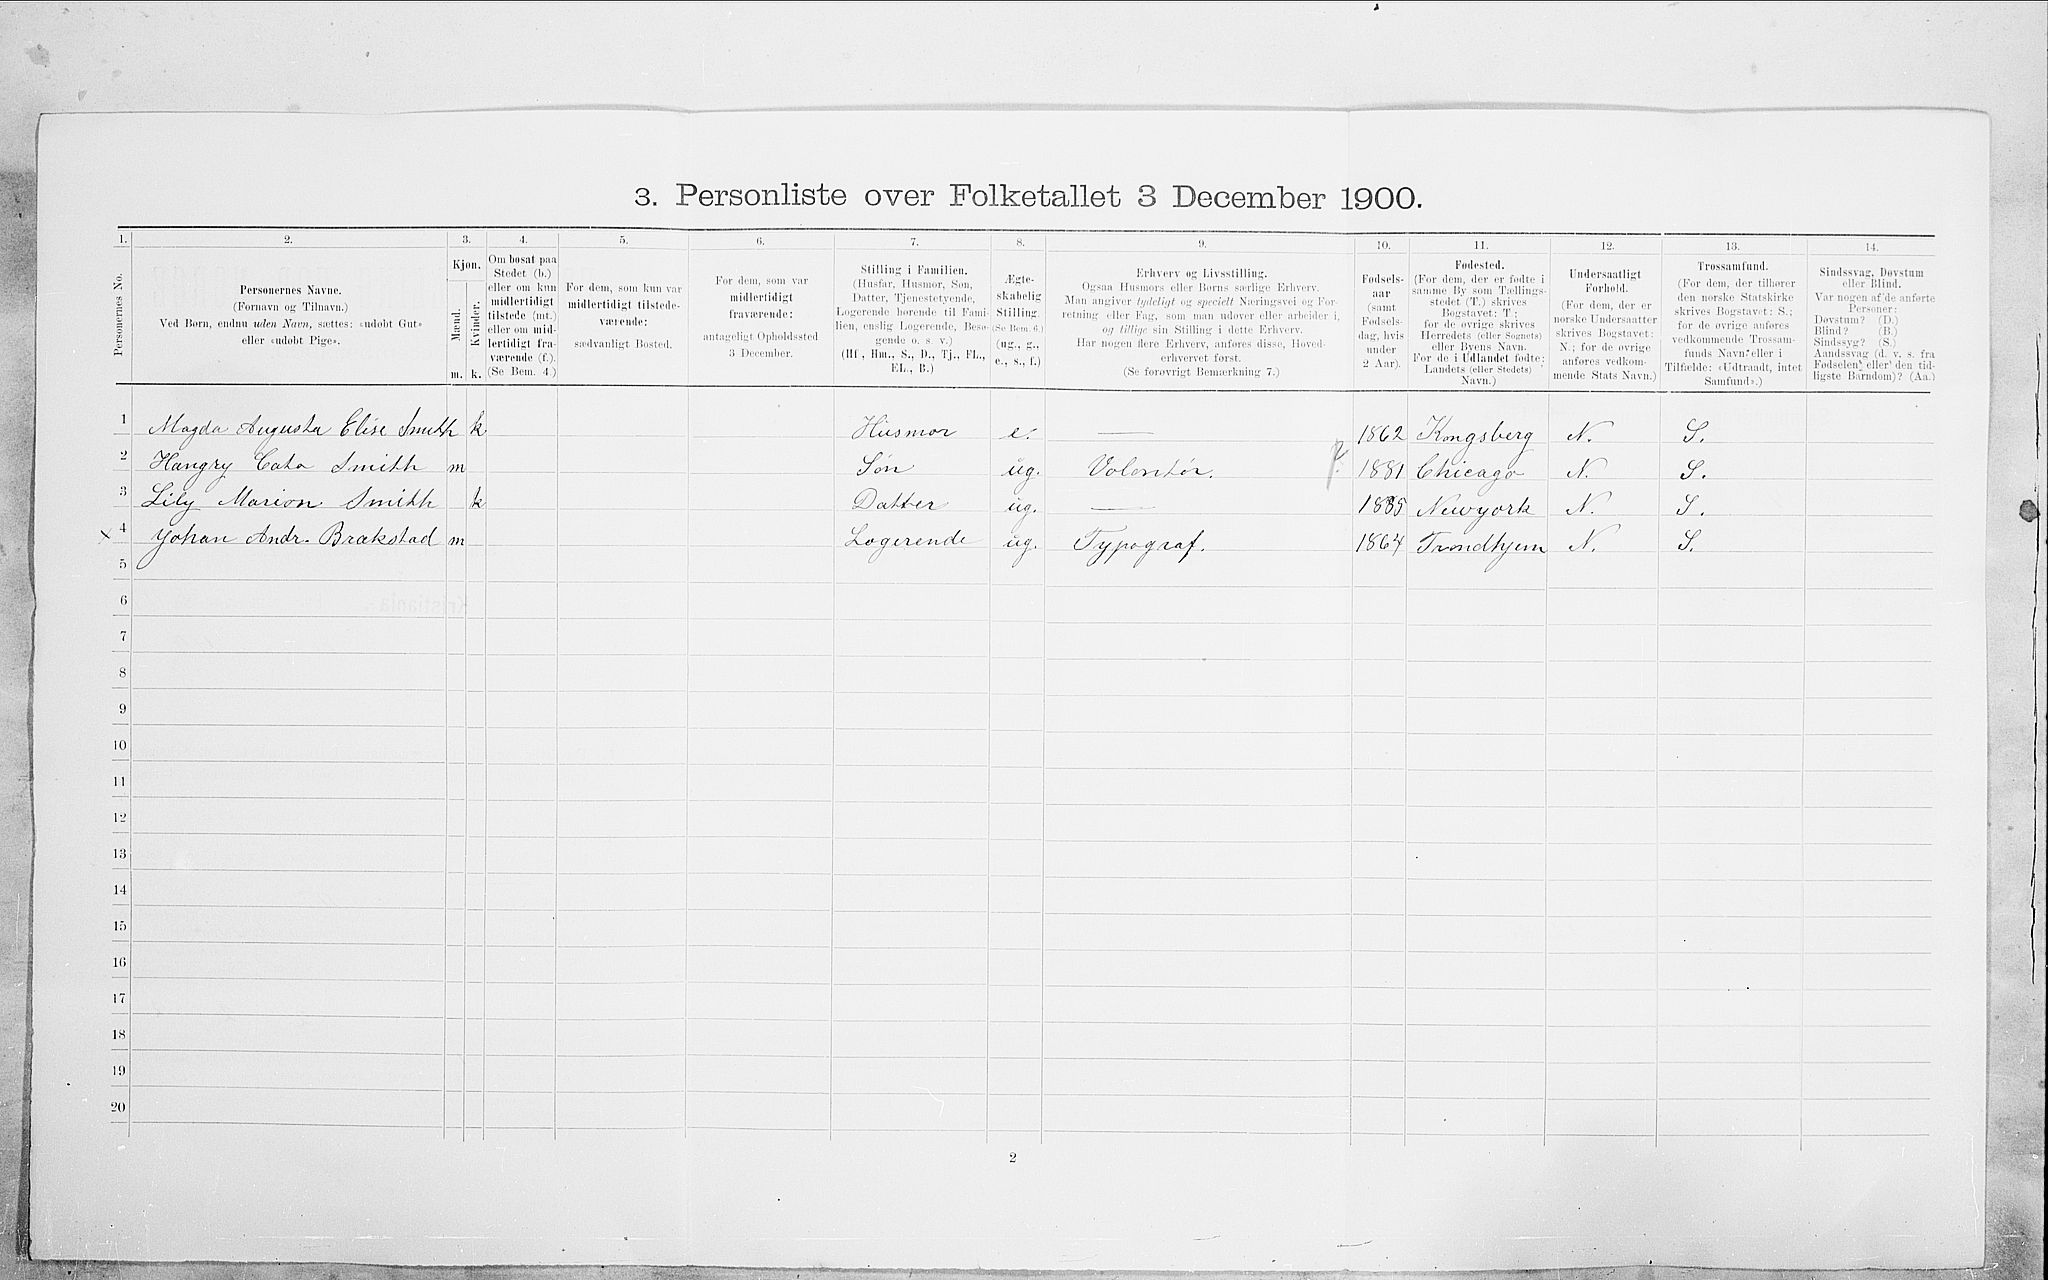 3. Personliste over Folketallet 3 December 1900.
1. 2. 3. 4. 5. 6. 7. 8. 9. 10. 11. 12. 13. 14.
Personernes No.
Personernes Navne.
(Fornavn og Tilnavn.)
Ved Børn, endnu uden Navn, sættes: «udøbt Gut»
eller «udøbt Pige».
Kjøn.
Mænd.
Kvinder.
m. k.
Om bosat paa
Stedet (b.)
eller om kun
midlertidigt
tilstede (mt.)
eller om mid-
lertidigt fra-
værende (f.).
(Se Bem. 4.)
For dem, som kun var
midlertidigt tilstede-
værende:
sædvanligt Bosted.
For dem, som var
midlertidigt
fraværende:
antageligt Opholdssted
3 December.
Stilling i Familien.
(Husfar, Husmor, Søn,
Datter, Tjenestetyende,
Logerende hørende til Fami-
lien, enslig Logerende, Besø-
gende o. s. v.)
(Hf., Hm., S., D., Tj., FL.,
EL., B.)
Ægte-
skabelig
Stilling.
(Se Bem. 6.)
(ug., g.,
e., s., f.)
Erhverv og Livsstilling.
Ogsaa Husmors eller Børns særlige Erhverv.
Man angiver tydeligt og specielt Næringsvei og For-
retning eller Fag, som man udøver eller arbeider i,
og tillige sin Stilling i dette Erhverv.
Har nogen flere Erhverv, anføres disse, Hoved-
erhvervet først.
(Se forøvrigt Bemærkning 7.)
Fødsels-
aar
(samt
Fødsels-
dag, hvis
under
2 Aar).
Fødested.
(For dem, der er fødte i
samme By som Tællings-
stedet (T.) skrives
Bogstavet: T.;
for de øvrige skrives
Herredets (eller Sognets)
eller Byens Navn.
For de i Udlandet fødte:
Landets (eller Stedets)
Navn.)
Undersaatligt
Forhold.
(For dem, der er
norske Undersaatter
skrives Bogstavet:
N.; for de øvrige
anføres vedkom-
mende Stats Navn.)
Trossamfund.
(For dem, der tilhører
den norske Statskirke
skrives Bogstavet: S.;
for de øvrige anføres
vedkommende Trossam-
funds Navn eller i
Tilfælde: «Udtraadt, intet
Samfund».)
Sindssvag, Døvstum
eller Blind.
Var nogen af de anførte
Personer:
Døvstum? (D.)
Blind? (B.)
Sindssyg? (S.)
Aandssvag (d. v. s. fra
Fødselen eller den tid-
ligste Barndom)? (Aa.)
1 Magda Augusta Elise Smith k Husmor e. — 1862 Kongsberg N. S.
2 Hangry Cato Smith m Søn ug. Volentør. 1881 Chicago N. S.
3 Lily Marion Smith k Datter ug. — 1885 Newyork N. S.
x 4 Johan Andr. Brækstad m Logerende ug. Typograf. 1864 Trondhjem N. S.
5
6
7
8
9
10
11
12
13
14
15
16
17
18
19
20
2